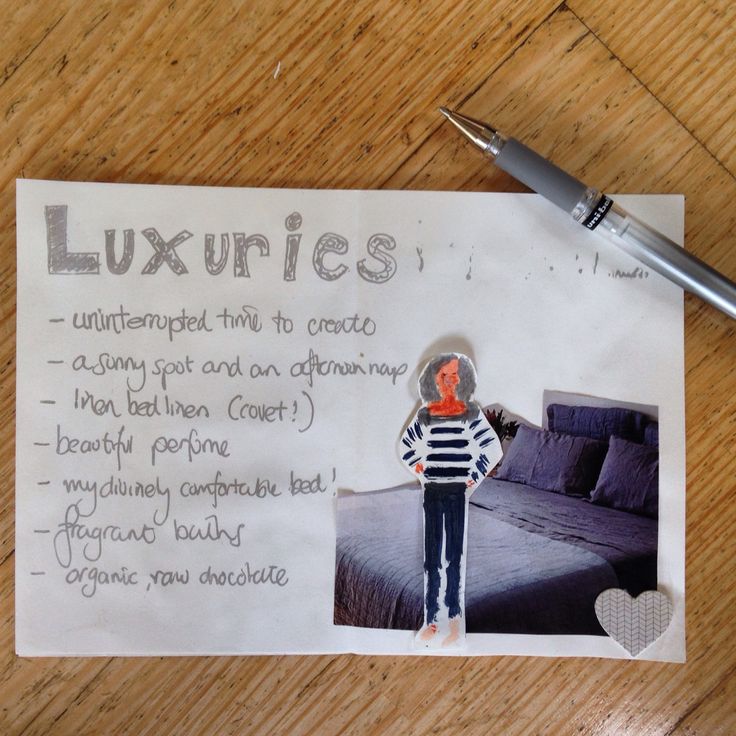 Luxuries
- uninterrupted time to create
- a sunny spot and an afternoon nap
- linen bedlinen (covet!)
- beautiful perfume
- my divinely comfortable bed!
- fragrant baths
- organic, raw chocolate